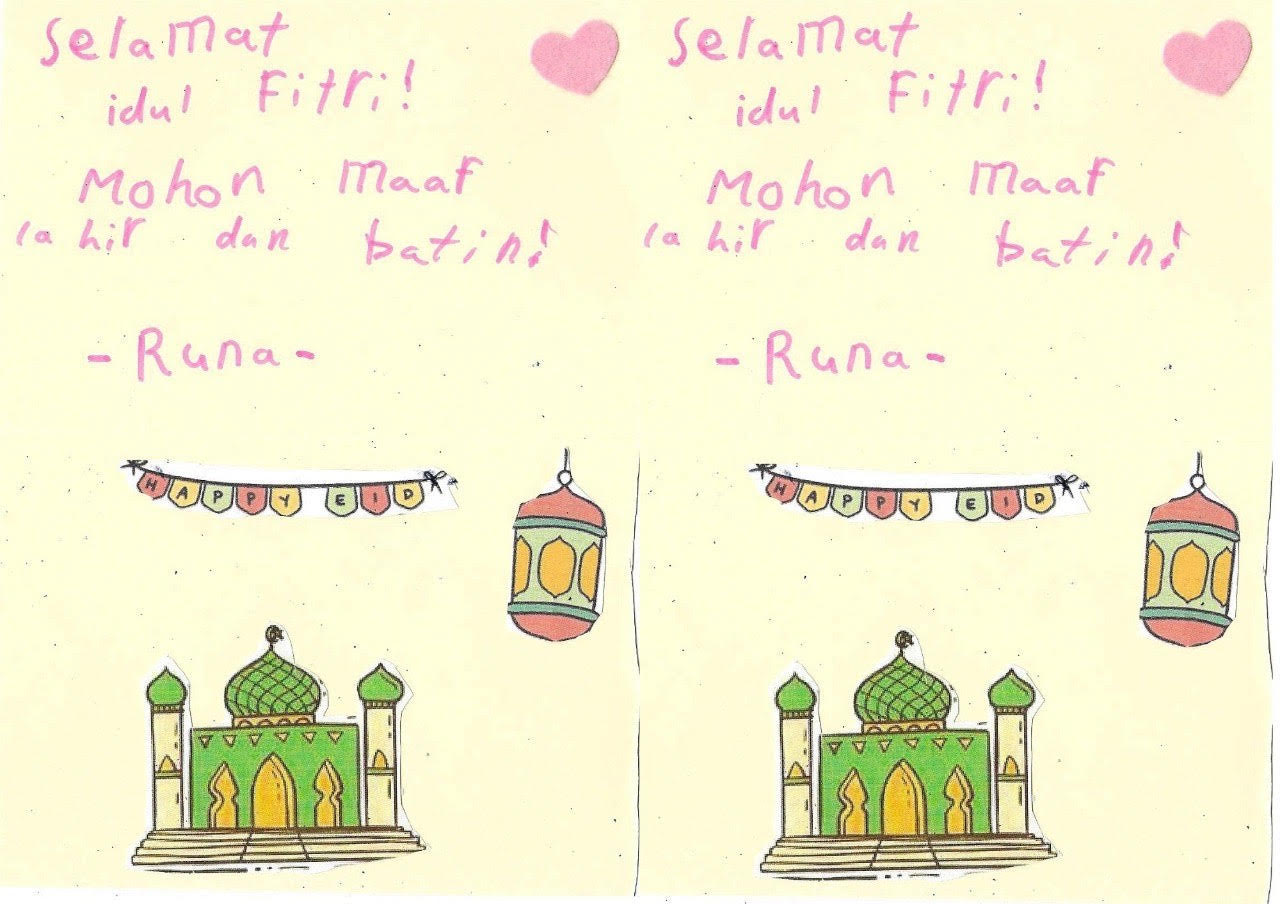 Selamat
idul Fitri!
Mohon Maaf
lahir dan batin!
- Runa -
HAPPY EID
Selamat
idul Fitri!
Mohon Maaf
lahir dan batin!
- Runa -
HAPPY EID